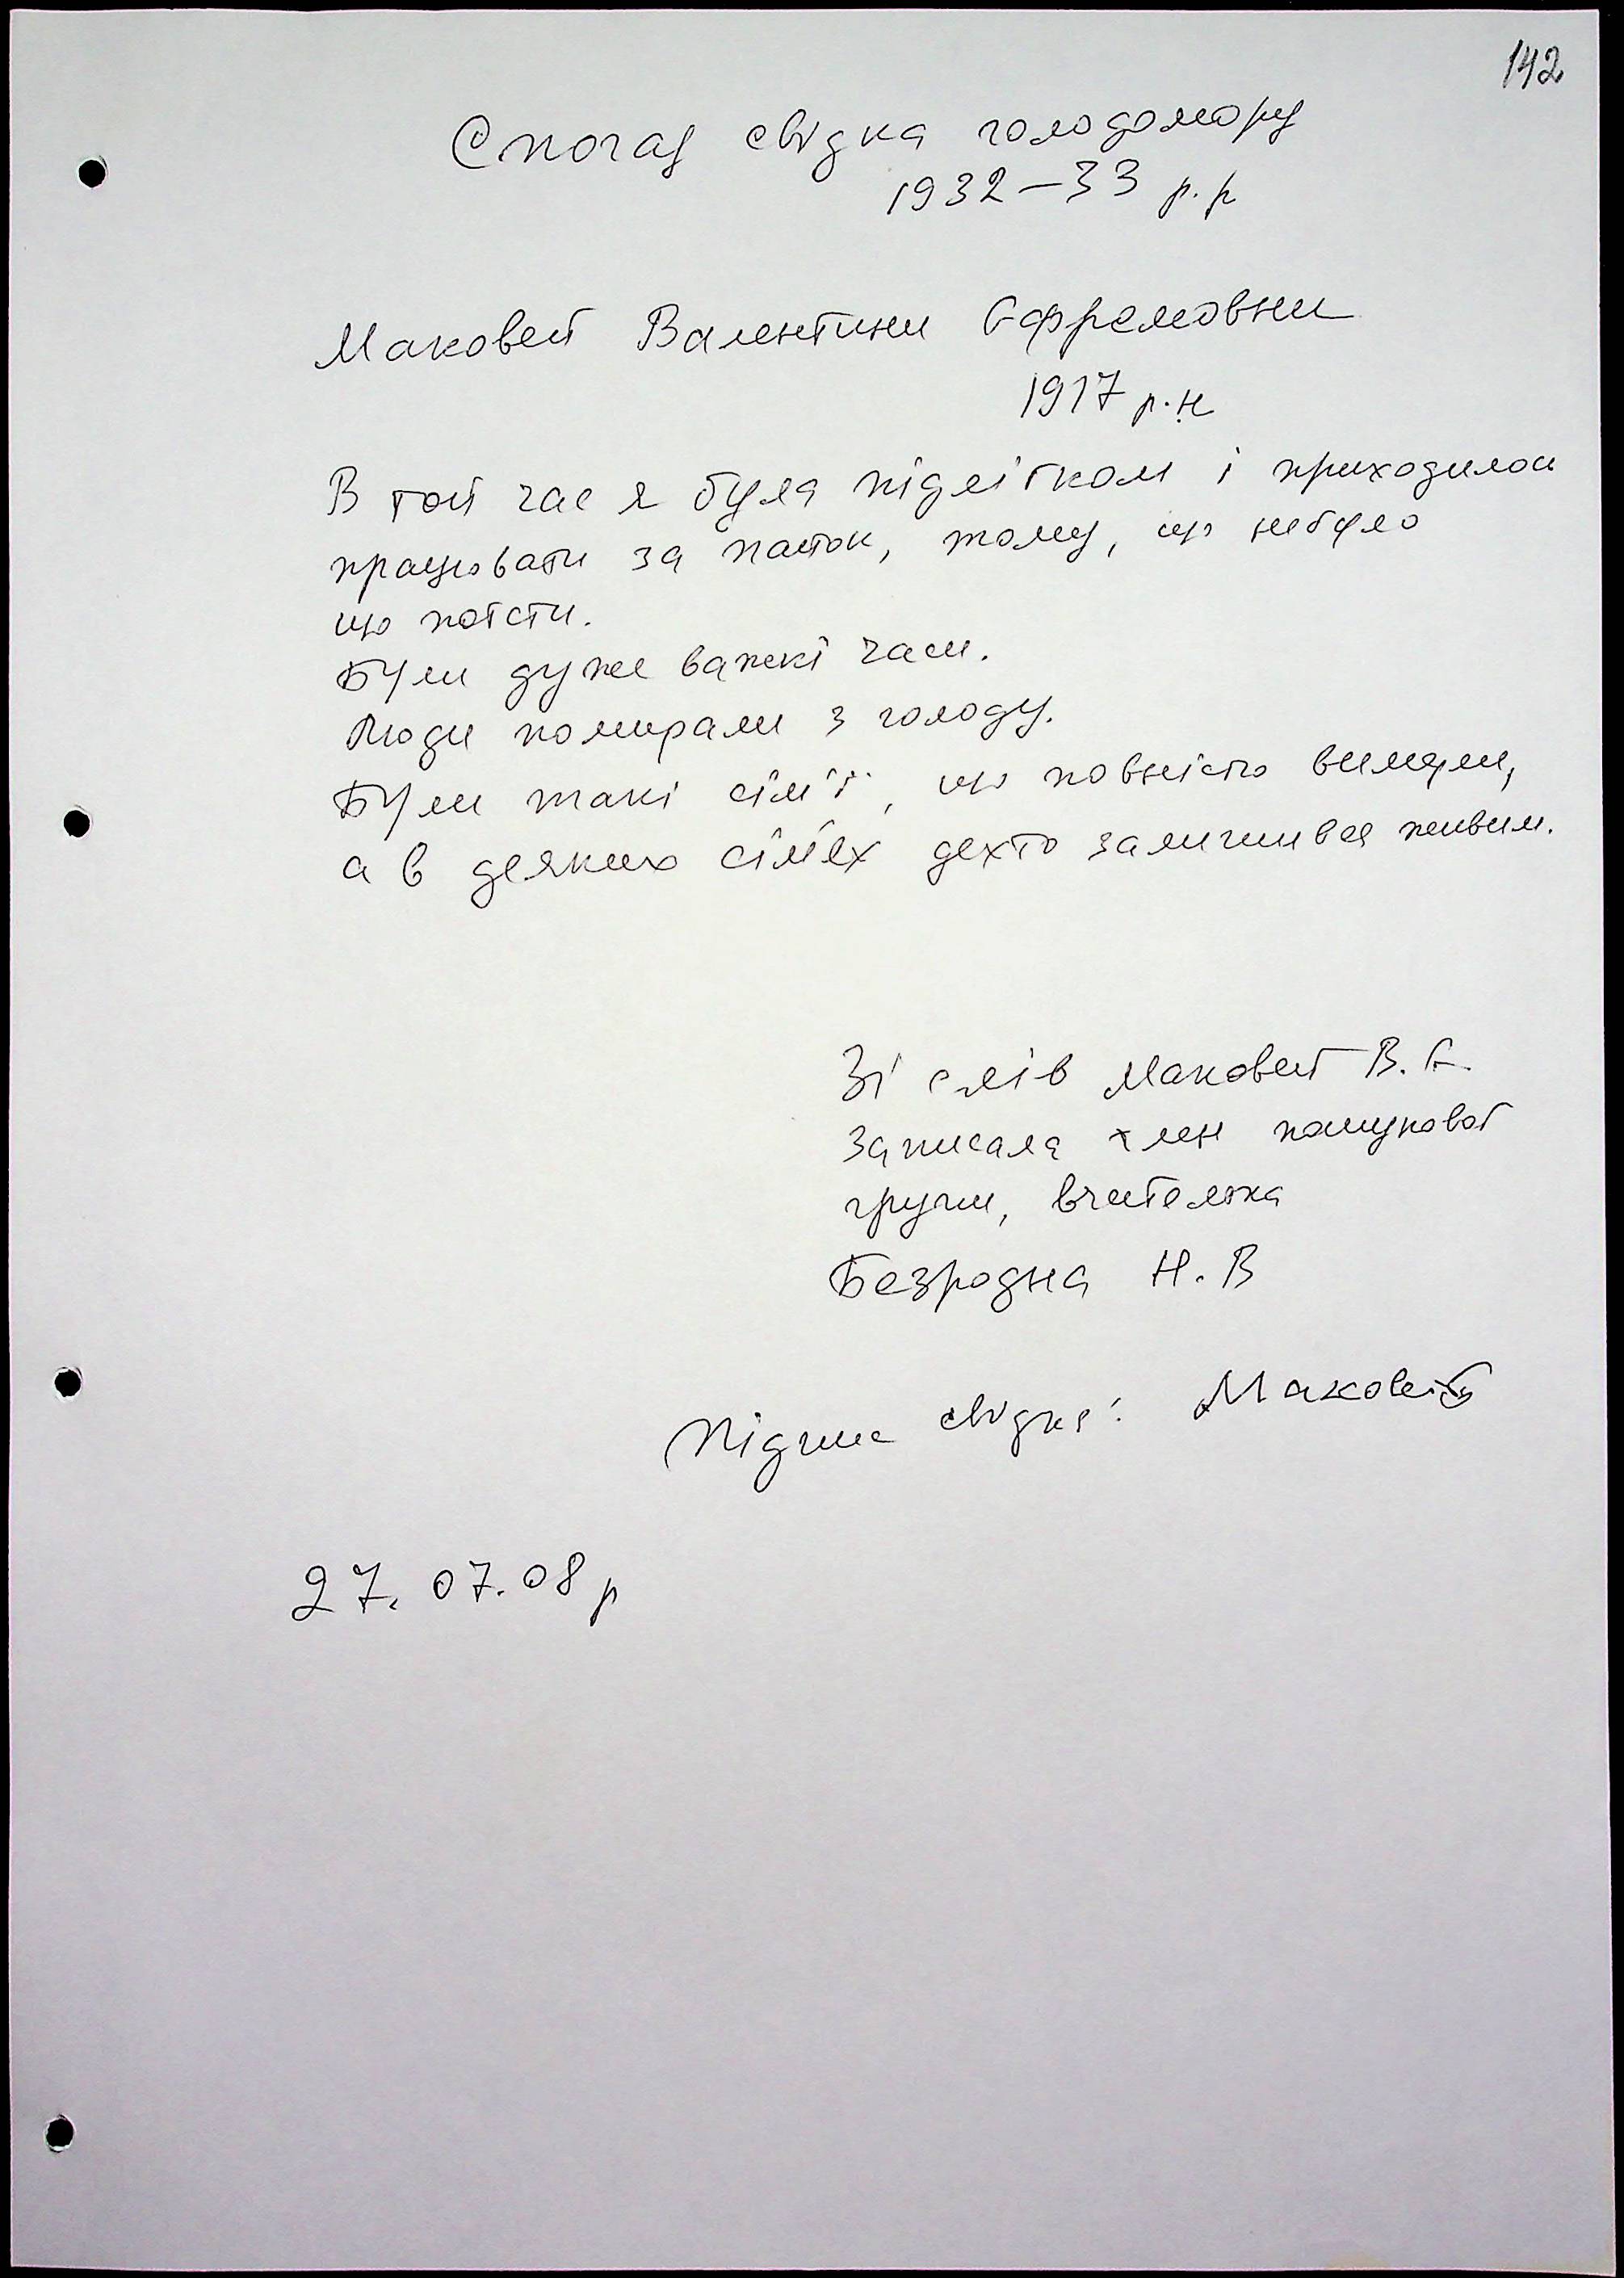 142
Спогад свідка голодомору
1932–33 р.р
Маковей Валентини Єфремовни
1917 р.н
В той час я була підлітком і приходилось
працювати за пайок, тому, що небуло
що поїсти.
Були дуже важкі часи.
Люди помирали з голоду.
Були такі сім'ї, що повністю вимерли,
а в деяких сім'ях дехто залишився живим.
Зі слів Маковей В. Є.
Записала член пошукової
групи, вчителька
Безродна Н. В
Підпис свідка: Маковей
27. 07. 08 р